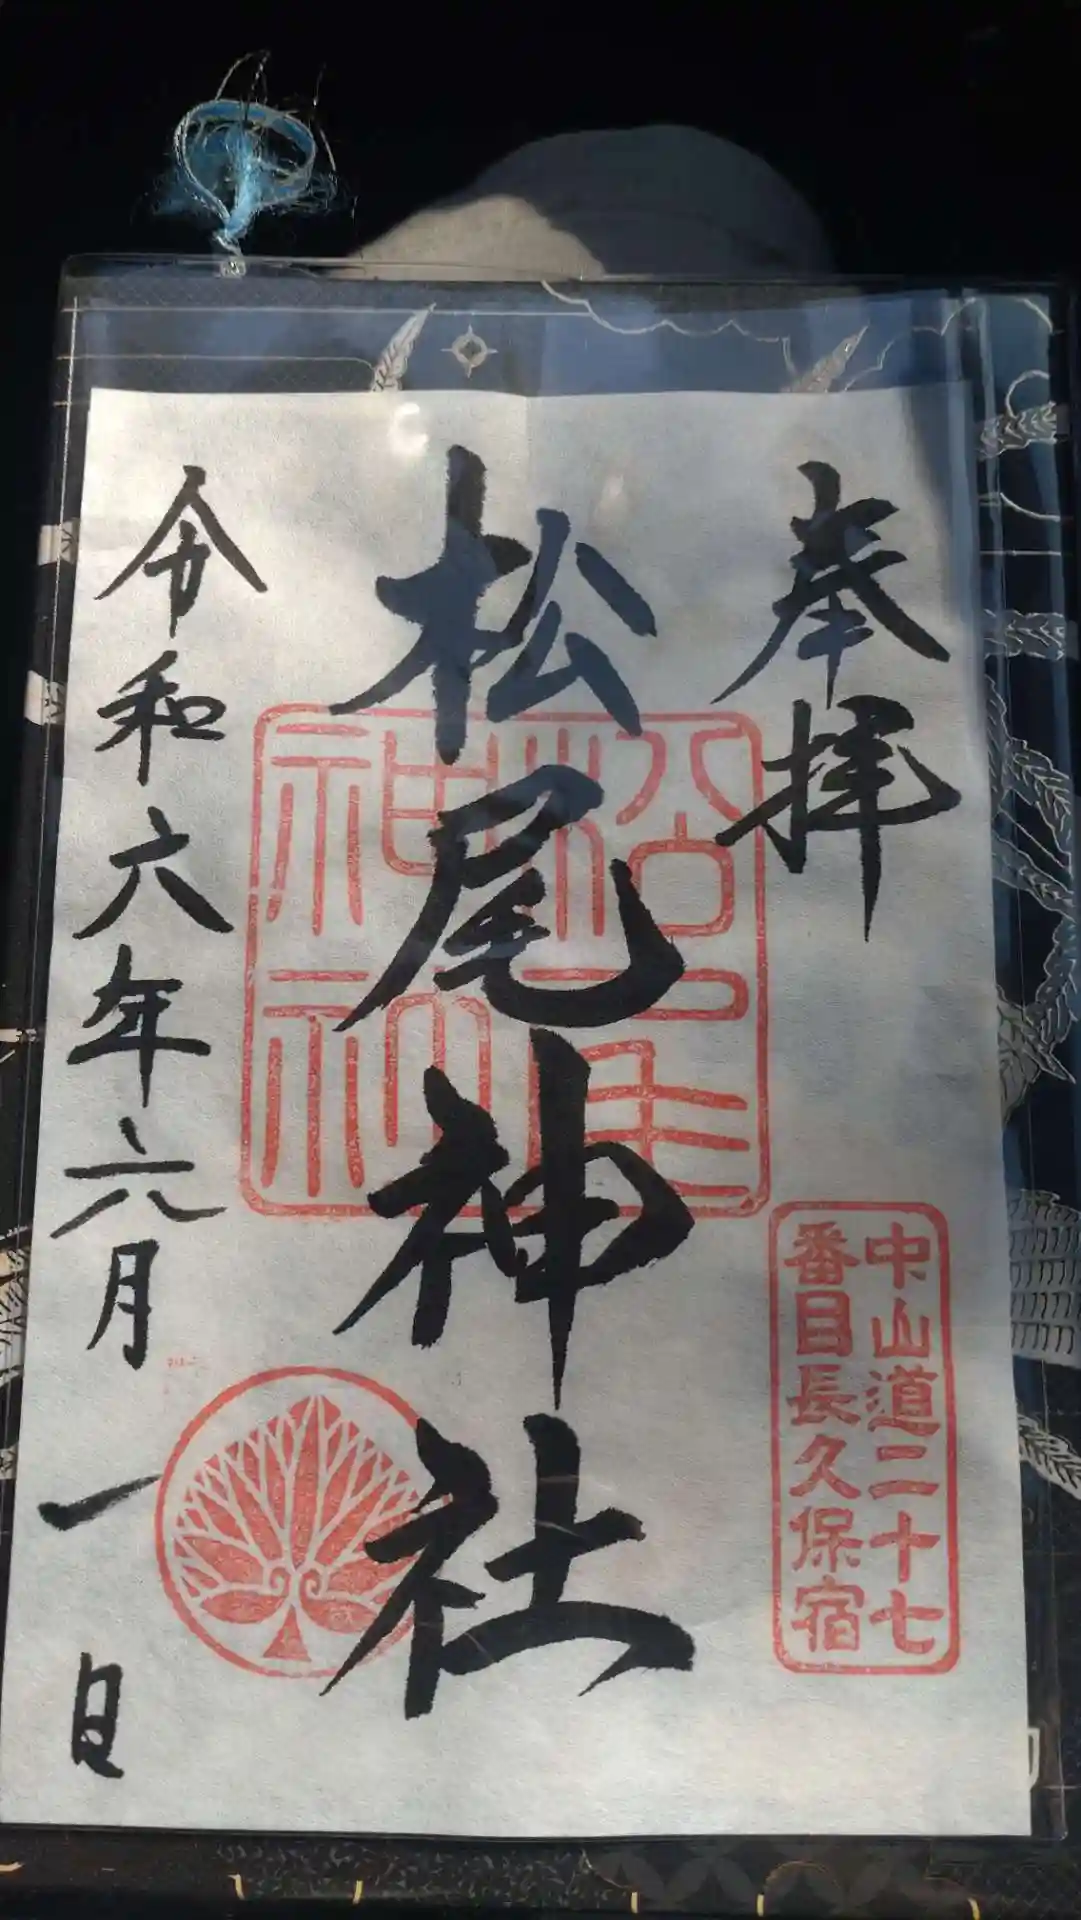 奉拝
松尾神社
令和六年六月一日
松尾神社
中山道二十七
番目長久保宿